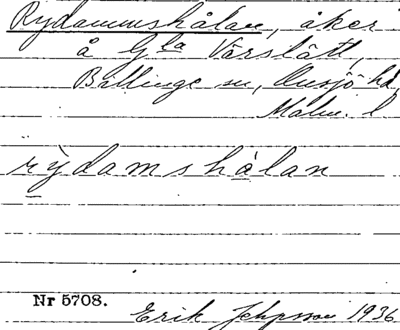 Rydammshålan, åker
å Gla Vårslätt,
Billinge sn, Onsjö hd
Malm. l
rydamshålan
Nr 5708.
Erik 1936